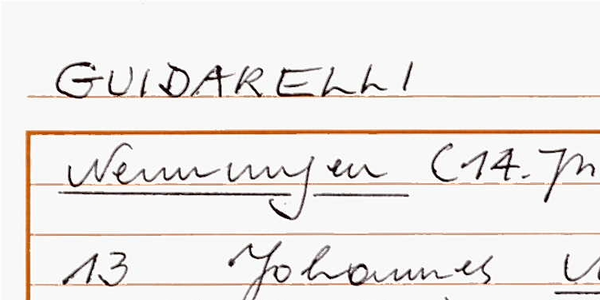 GUIDARELLI
Nennungen (14. Jh
13 Johannes